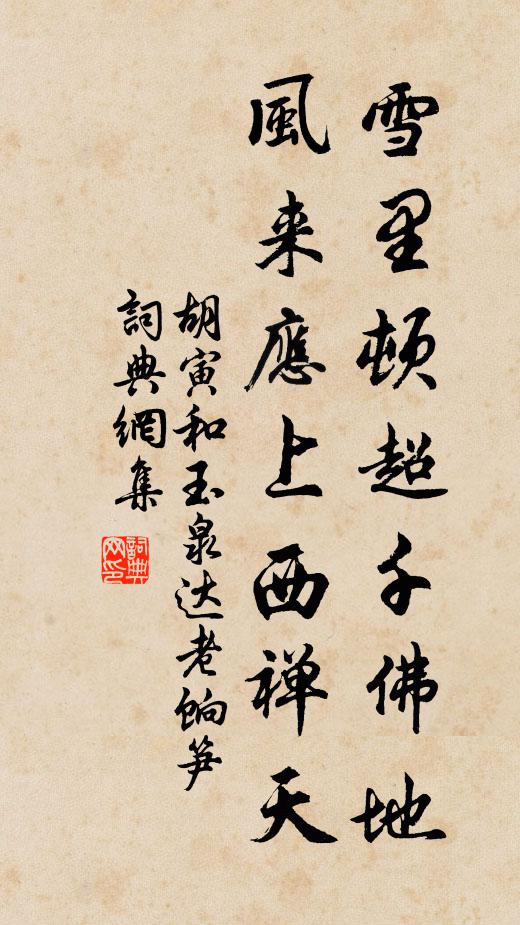 雪里頓超千佛地
風来應上西禅天
胡寅和玉泉达老餉笋
詞典網集
詞典網印